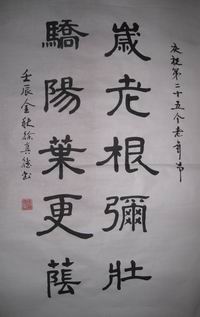 庆祝第二十五个老年节
歲老根彌壯
驕陽葉更蔭
壬辰金秋徐真德书